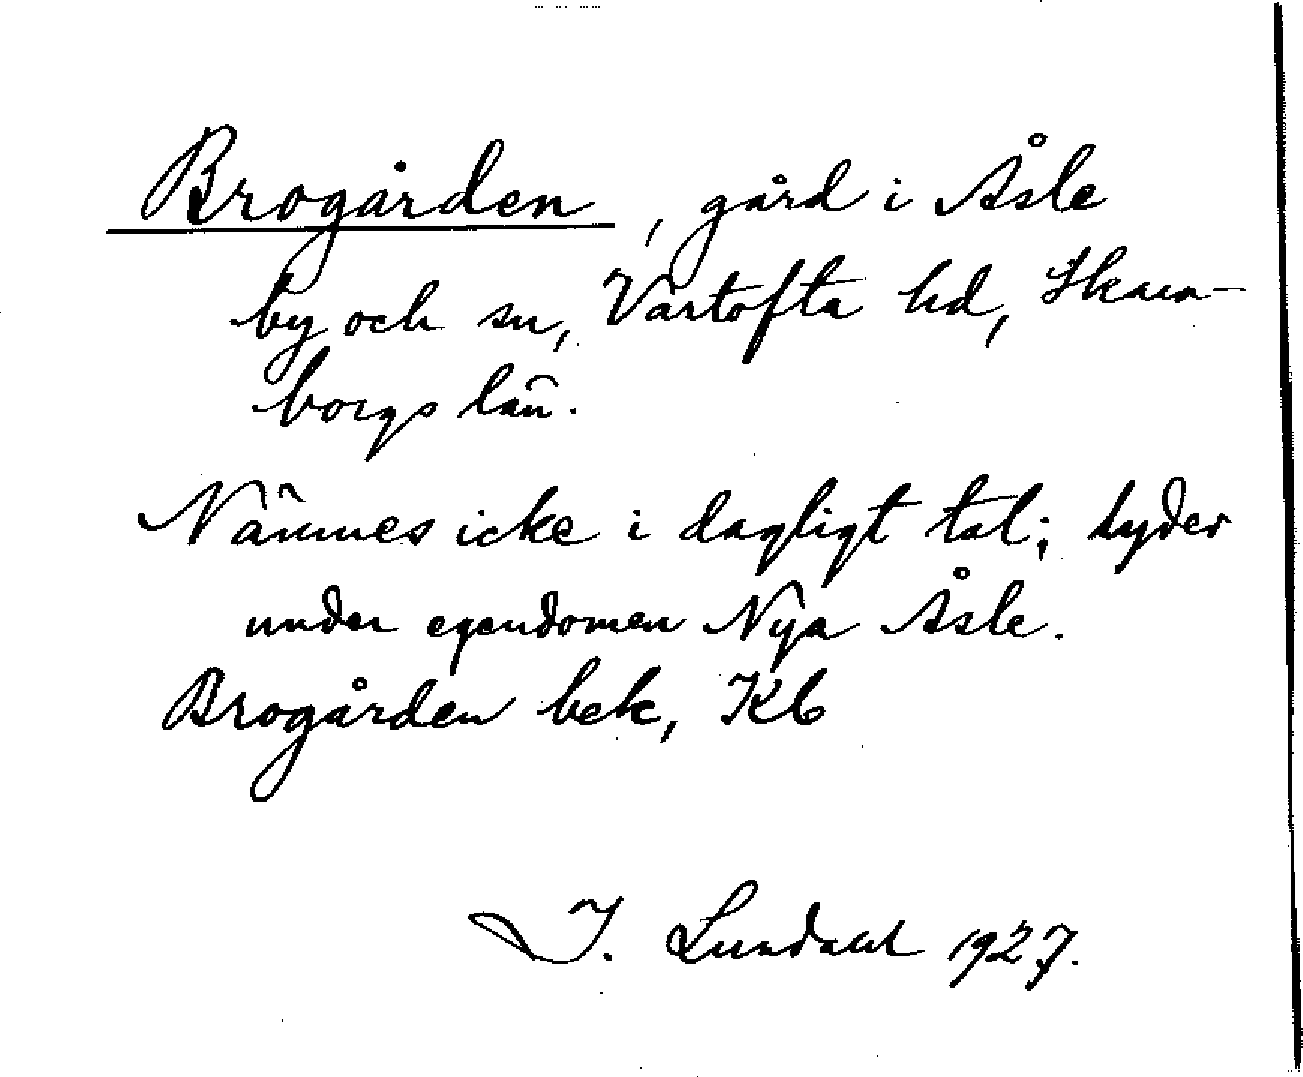 Brogården, gård i Åsle
by och sn, Vartofta hd, Skara-
borgs län.
Nämnes icke i dagligt tal; lyder
under egendomen Nya Åsle.
Brogården bek, Kb
I. Lundahl 1927.